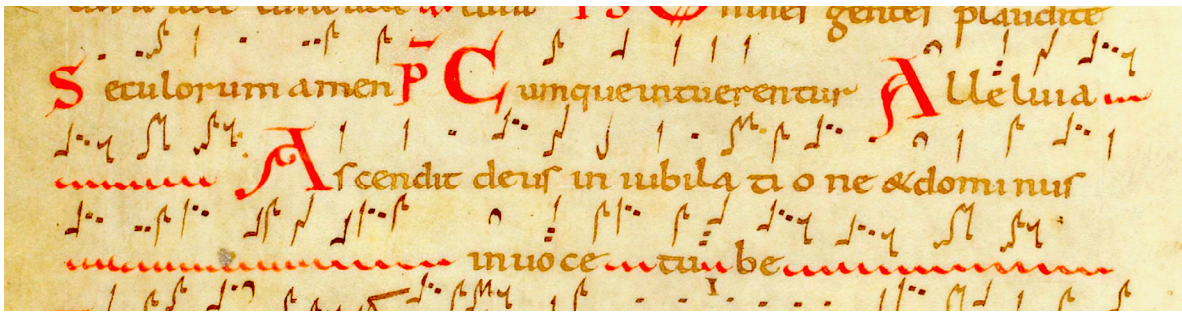 omnes gentes plaudite
Seculorum amen P Cumque intuerentur Alleluia
Ascendit deus in iubilatione & dominus
in uoce tube